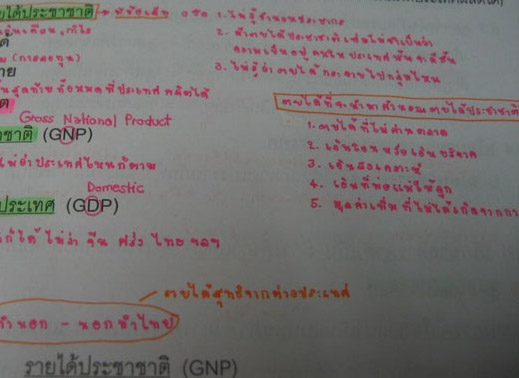 รายได้ประชาชาติ → มีข้อเสีย 3 ข้อ 1. ไม่รู้จำนวนประชากร
2. ถ้ารายได้ประชาชาติ
ความเป็นอยู่ คนใน ประเทศ นั้น จะดีขึ้น
3. ไม่รู้ว่า รายได้ กระจายไปกลุ่มไหน
สุดท้ายทั้งหมดที่ประเทศผลิตได้
Gross National Product
ชาติ (GNP)
ไม่ว่าประเทศไหนก็ตาม
Domestic
ประเทศ (GDP)
ก็ได้ ไม่ว่า จีน ฝรั่ง ไทย ฯลฯ
รายได้ที่จะนำมาคำนวณรายได้ประชาชาติ
1. รายได้ที่ไม่ผ่านตลาด
2. เงินโอน หรือเงินบริจาค
3. เงินสงเคราะห์
4. เงินที่พ่อแม่ให้ลูก
5. มูลค่าเพิ่มที่ไม่ได้เกิดจากการ
รายได้สุทธิจากต่างประเทศ
ทำนอก - นอกทำไทย
รายได้ประชาชาติ (GNP)